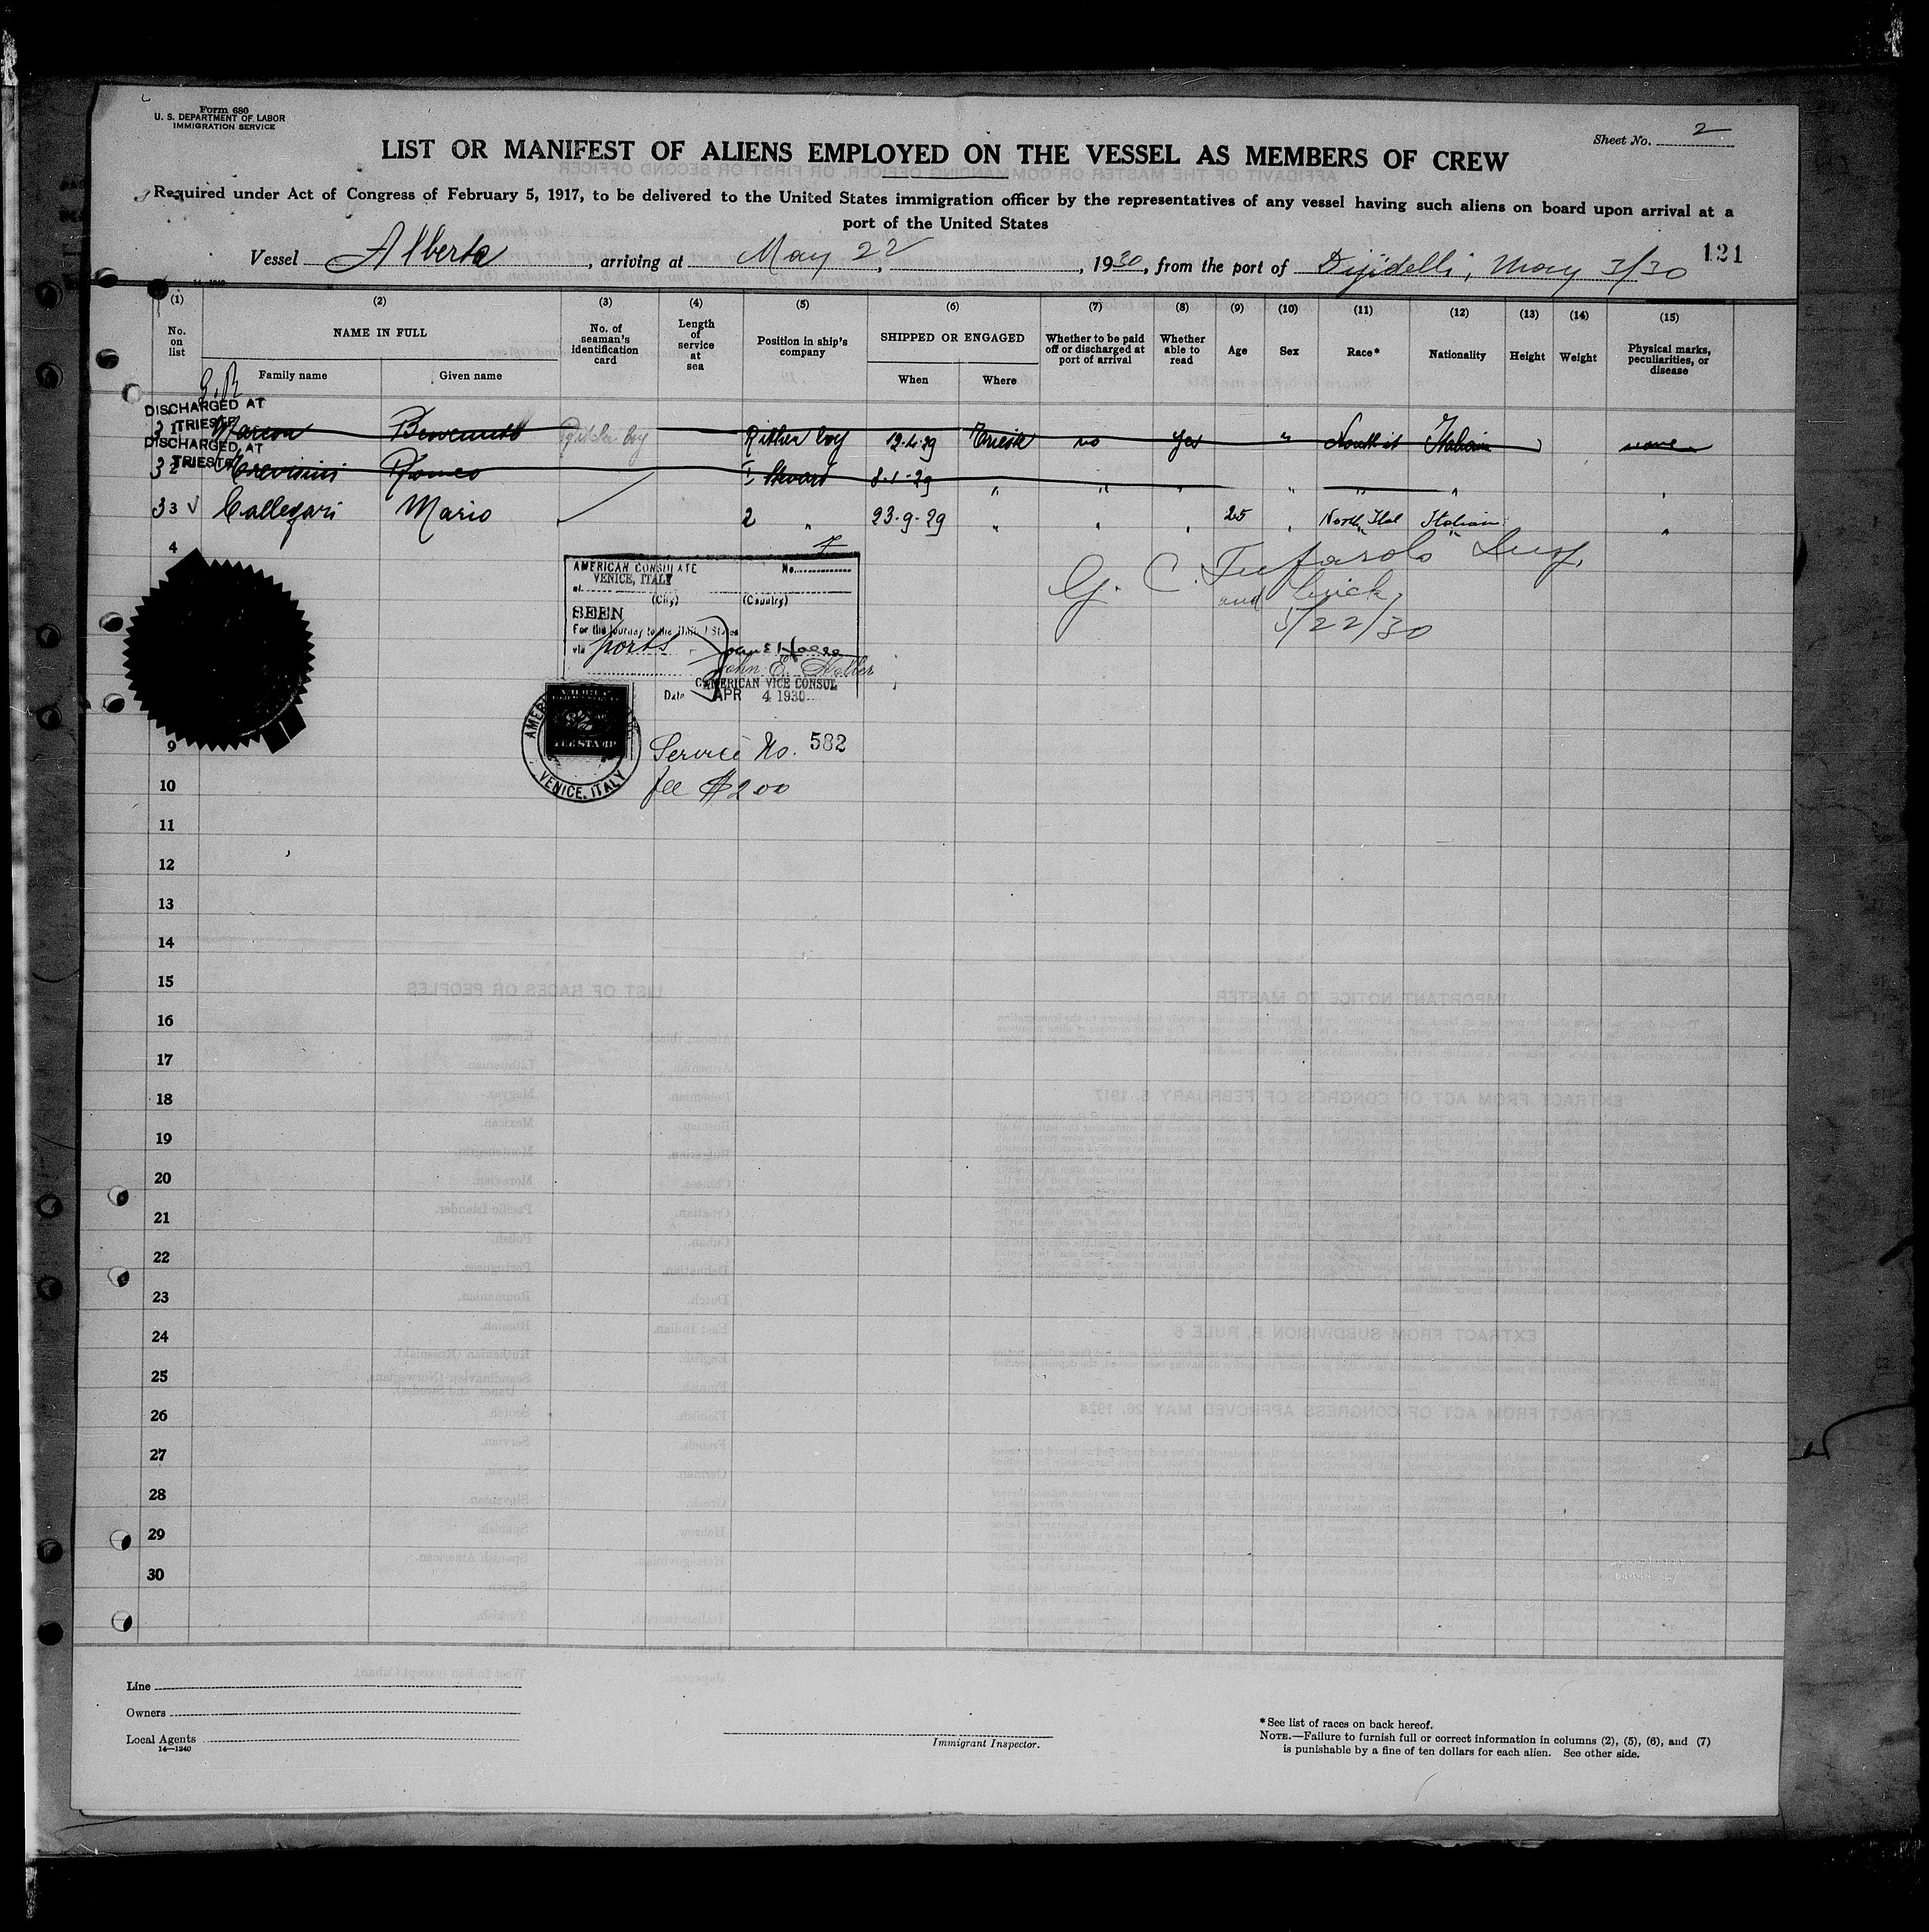 Form 680
U. S. DEPARTMENT OF LABOR
IMMIGRATION SERVICE
Sheet No. 2
LIST OR MANIFEST OF ALIENS EMPLOYED ON THE VESSEL AS MEMBERS OF CREW
Required under Act of Congress of February 5, 1917, to be delivered to the United States immigration officer by the representatives of any vessel having such aliens on board upon arrival at a
port of the United States
121
Vessel Alberta, arriving at May 22, 1930, from the port of Dijidelli, May 3/30
(1) (2) (3) (4) (5) (6) (7) (8) (9) (10) (11) (12) (13) (14) (15)
No. on list
NAME IN FULL
Family name Given name
No. of seaman's identification card
Length of service at sea
Position in ship's company
SHIPPED OR ENGAGED
When Where
Whether to be paid off or discharged at port of arrival
Whether able to read
Age
Sex
Race*
Nationality
Height
Weight
Physical marks, peculiarities, or disease
DISCHARGED AT
TRIESTE
31 Marcon Benvenuto Kitchen boy 12-4-29 Trieste no yes " North it Italian none
DISCHARGED AT
TRIESTE
32 Romeo I Steward 8-1-29 " " " " " "
33 √ Callegari Mario 2 " 23-9-29 " " " 25 " North Ital Italian "
4
G. C. Tufarolo Insp.
and
5/22/30
AMERICAN CONSULATE No. 7
VENICE, ITALY
at
(City) (Country)
SEEN
For the journey to the United States
via ports
John E. Holler
AMERICAN VICE CONSUL
Date APR 4 1930
FEE STAMP
VENICE, ITALY
Service No. 582
fee $2 00
9
10
11
12
13
14
15
16
17
18
19
20
21
22
23
24
25
26
27
28
29
30
Line
Owners
Local Agents
14—1240
Immigrant Inspector.
* See list of races on back hereof.
NOTE.—Failure to furnish full or correct information in columns (2), (5), (6), and (7)
is punishable by a fine of ten dollars for each alien. See other side.